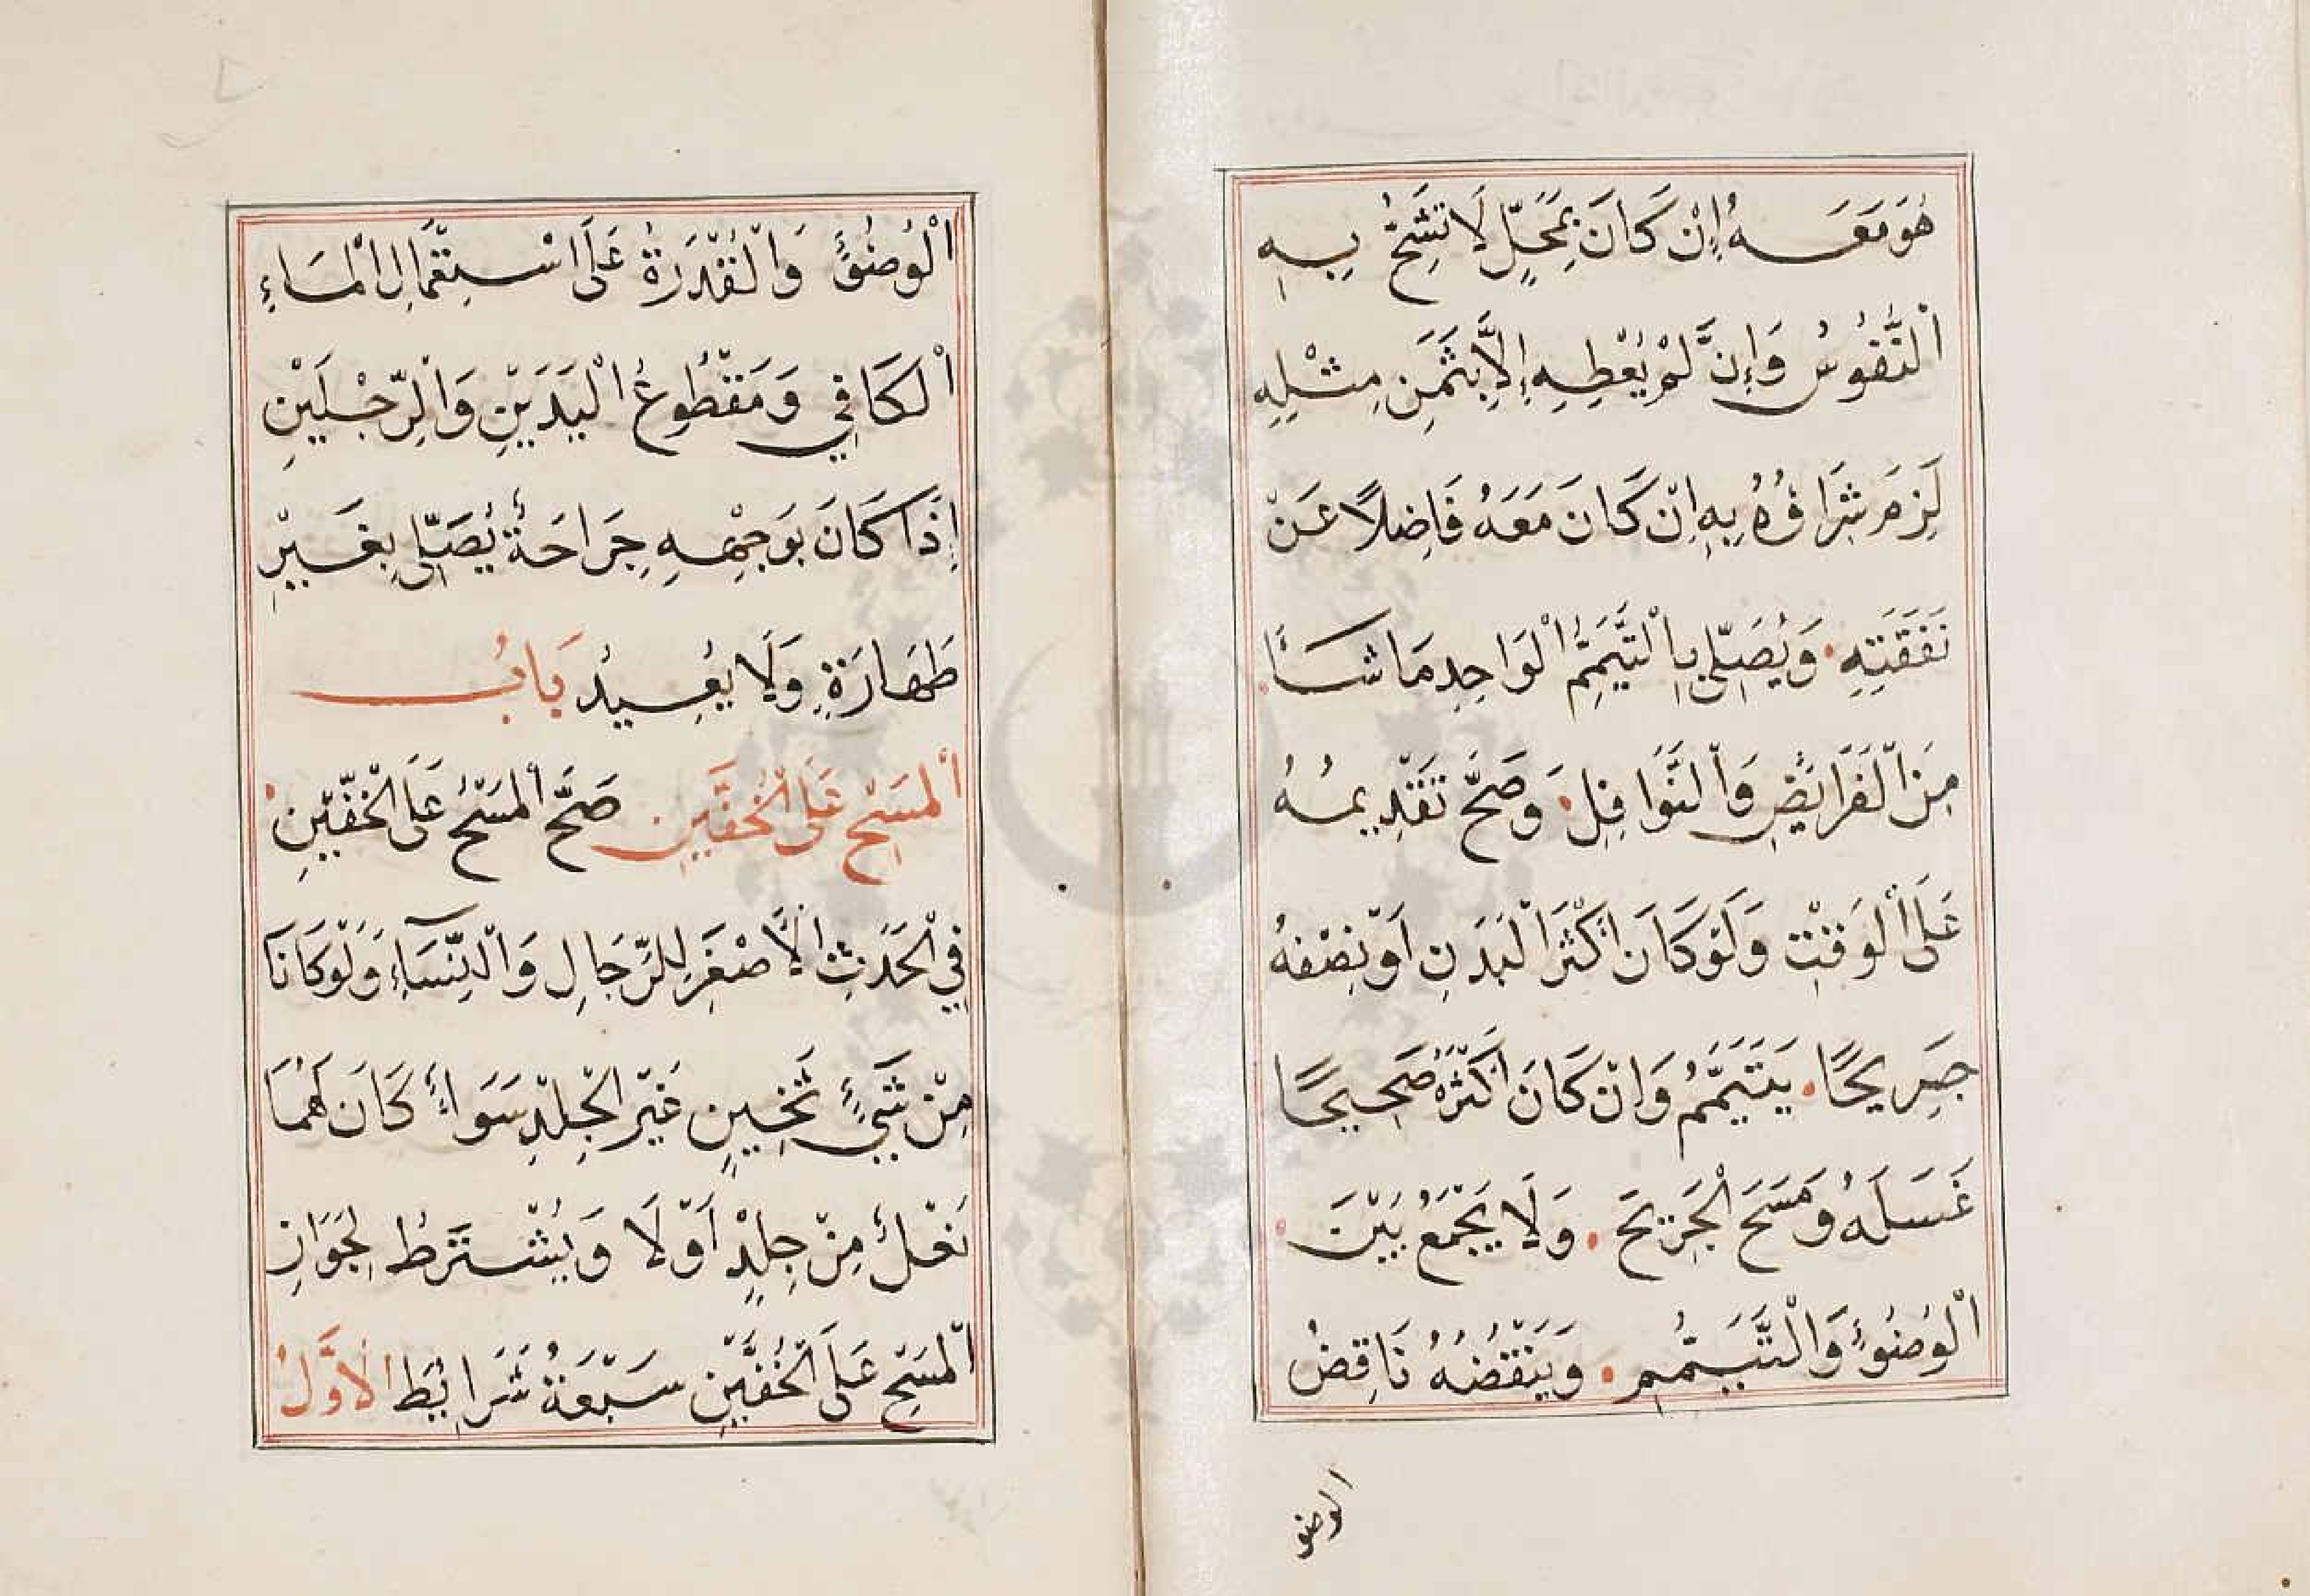 هُوَ مَعَهُ إِنْ كَانَ بِمَحَلٍّ لَا تَشِحُّ بِهِ
اَلنُّفُوسُ وَإِنْ لَمْ يُعْطِهِ إِلَّا بِثَمَنِ مِثْلِهِ
لَزِمَ شِرَاؤُهُ بِهِ اِنْ كَانَ مَعَهُ فَاضِلًا عَنْ
نَفَقَتِهِ وَيُصَلِّي بِالتَّيَمُّمِ الْوَاحِدِ مَا شَاءَ
مِنَ الْفَرَائِضِ وَالنَّوَافِلِ وَصَحَّ تَقْدِيمُهُ
عَلَى الْوَقْتِ وَلَوْ كَانَ اَكْثَرَ الْبَدَنِ اَوْ نِصْفُهُ
جَرِيحًا يَتَيَمَّمُ وَاِنْ كَانَ اَكْثَرُهُ صَحِيحًا
غَسَلَهُ وَمَسَحَ الْجَرِيحَ وَلَا يَجْمَعُ بَيْنَ
الْوُضُوءِ وَالتَّيَمُّمِ وَيَنْقُضُهُ نَاقِضُ
الوضو
الْوُضُوءِ وَالْقُدْرَةُ عَلَى اسْتِعْمَالِ الْمَاءِ
الْكَافِي وَمَقْطُوعُ الْيَدَيْنِ وَالرِّجْلَيْنِ
إِذَا كَانَ بِوَجْهِهِ جِرَاحَةٌ يُصَلِّي بِغَيْرِ
طَهَارَةٍ وَلَا يُعِيدُ بَابُ
الْمَسْحِ عَلَى الْخُفَّيْنِ صَحَّ الْمَسْحُ عَلَى الْخُفَّيْنِ
فِي الْحَدَثِ الْأَصْغَرِ لِلرِّجَالِ وَالنِّسَآءِ وَلَوْ كَانَا
مِنْ شَيْئٍ ثَخِينٍ غَيْرِ الْجِلْدِ سَوَاءً كَانَ لَهُمَا
نَعْلٌ مِنْ جِلْدٍ اَوْ لَا وَيُشْتَرَطُ لِجَوَازِ
الْمَسْحِ عَلَى الْخُفَّيْنِ سَبْعَةُ شَرَائِطَ الْاَوَّلُ